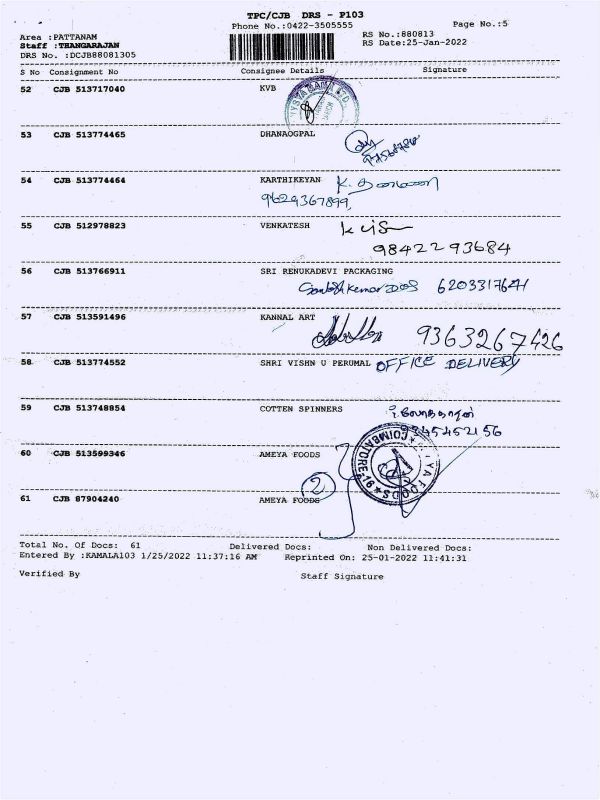 TPC/CJB DRS - P103
Phone No.:0422-3505555
Page No.:5
Area :PATTANAM
Staff :THANGARAJAN
DRS No. :DCJB88081305
RS No.:880813
RS Date:25-Jan-2022
S No Consignment No Consignee Details Signature
52 CJB 513717040 KVB
53 CJB 513774465 DHANAOGPAL
54 CJB 513774464 KARTHIKEYAN
9629367899
55 CJB 512978823 VENKATESH
9842293684
56 CJB 513766911 SRI RENUKADEVI PACKAGING
6203317641
57 CJB 513591496 KANNAL ART
9363267426
58 CJB 513774552 SHRI VISHN U PERUMAL OFFICE DELIVERY
59 CJB 513748854 COTTEN SPINNERS
9345452156
60 CJB 513599346 AMEYA FOODS
COIMBATORE FOODS
2
61 CJB 87904240 AMEYA FOODS
Total No. Of Docs: 61 Delivered Docs: Non Delivered Docs:
Entered By :KAMALA103 1/25/2022 11:37:16 AM Reprinted On: 25-01-2022 11:41:31
Verified By Staff Signature